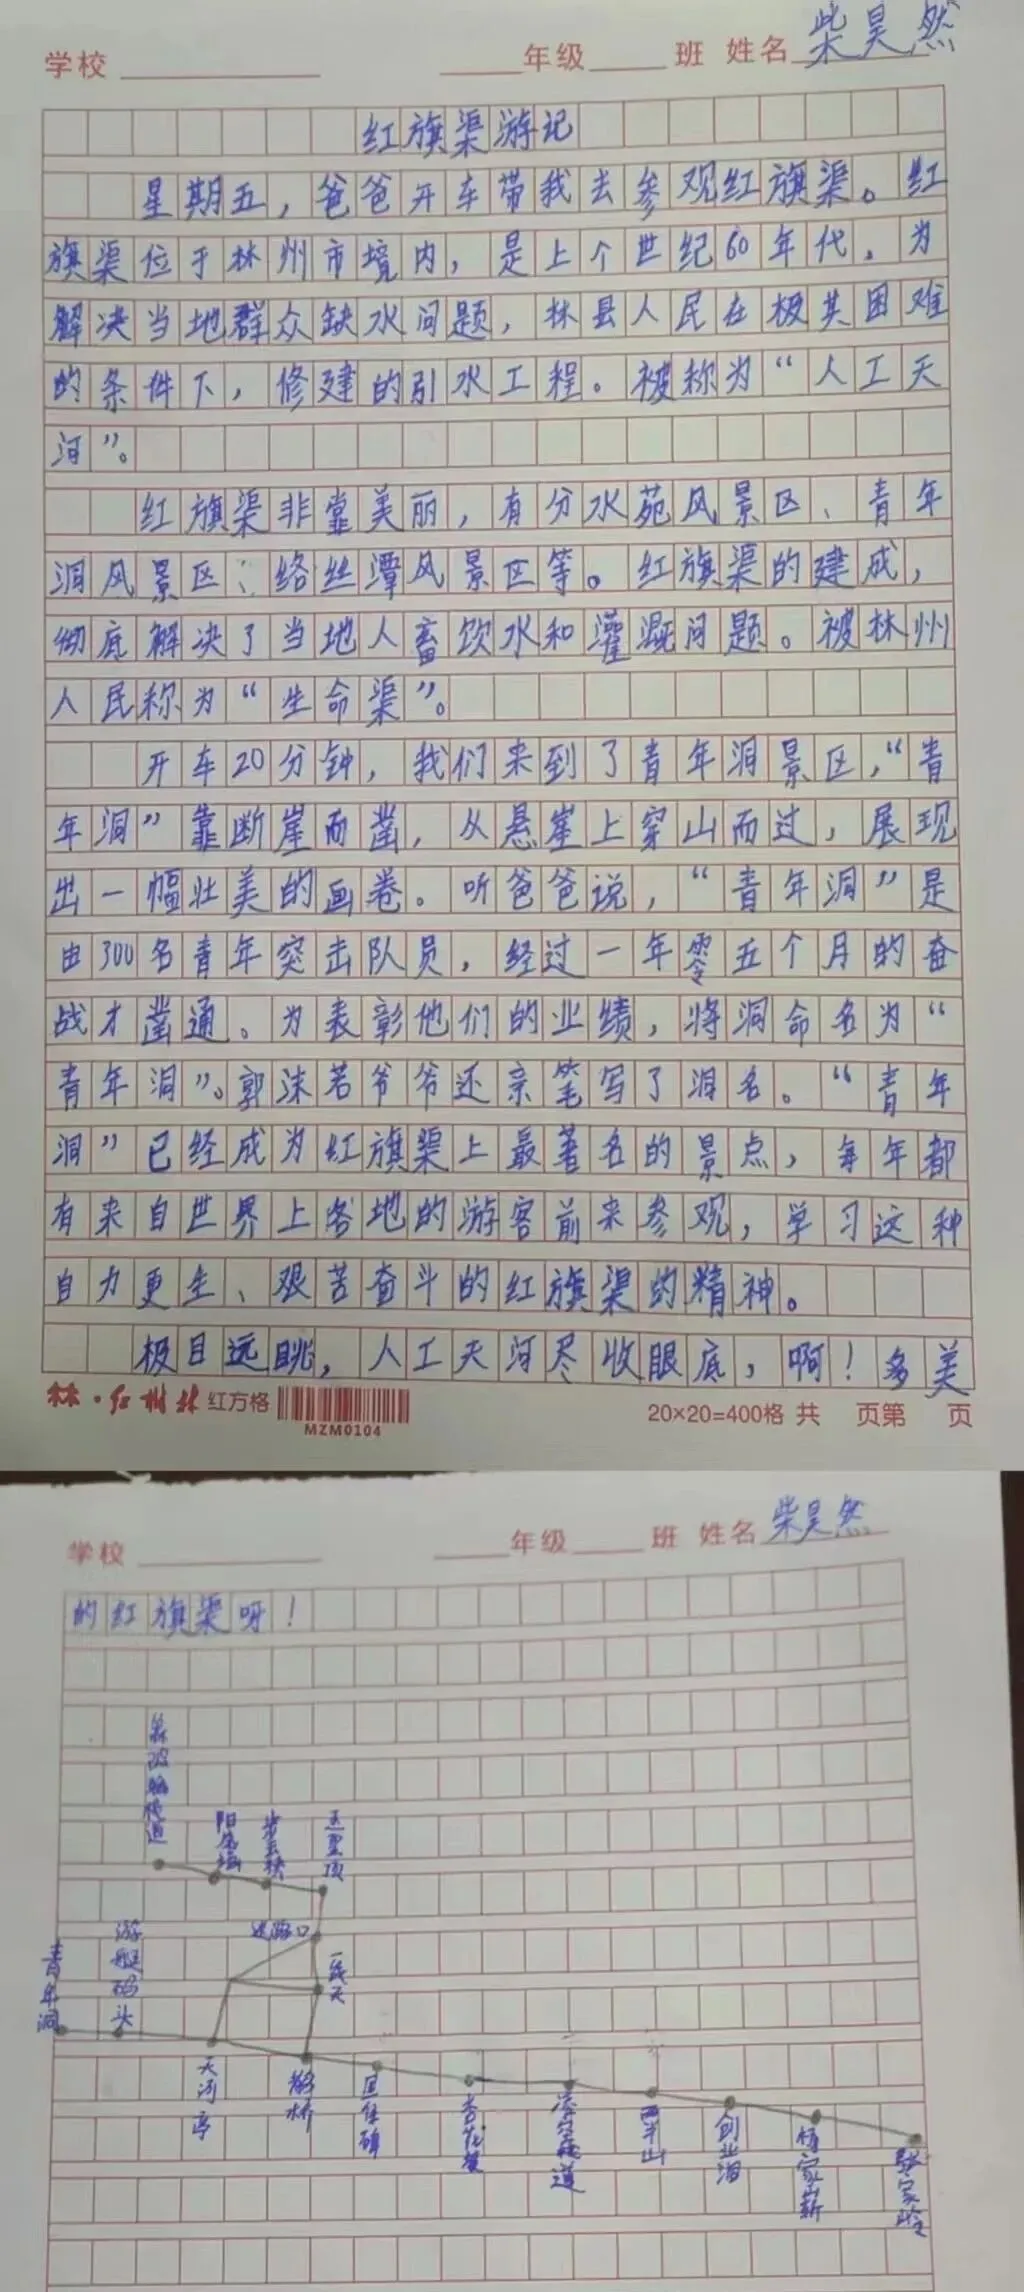 学校 年级 班 姓名 柴昊然
红旗渠游记
星期五，爸爸开车带我去参观红旗渠。红
旗渠位于林州市境内，是上个世纪60年代，为
解决当地群众缺水问题，林县人民在极其困难
的条件下，修建的引水工程。被称为“人工天
河”。
红旗渠非靠美丽，有分水苑风景区、青年
洞风景区、络丝潭风景区等。红旗渠的建成，
彻底解决了当地人畜饮水和灌溉问题。被林州
人民称为“生命渠”。
开车20分钟，我们来到了青年洞景区，“青
年洞”靠断崖而凿，从悬崖上穿山而过，展现
出一幅壮美的画卷。听爸爸说，“青年洞”是
由300名青年突击队员，经过一年零五个月的奋
战才凿通。为表彰他们的业绩，将洞命名为“
青年洞”。郭沫若爷爷还亲笔写了洞名。“青年
洞”已经成为红旗渠上最著名的景点，每年都
有来自世界上各地的游客前来参观，学习这种
自力更生、艰苦奋斗的红旗渠的精神。
极目远眺，人工天河尽收眼底，啊！多美
林·红树林 红方格 MZM0104 20×20=400格 共 页第 页
学校 年级 班 姓名 柴昊然
的红旗渠呀！
步云梯
迷路口
一线天
青年洞
游艇码头
天河亭
创业洞
张家岭